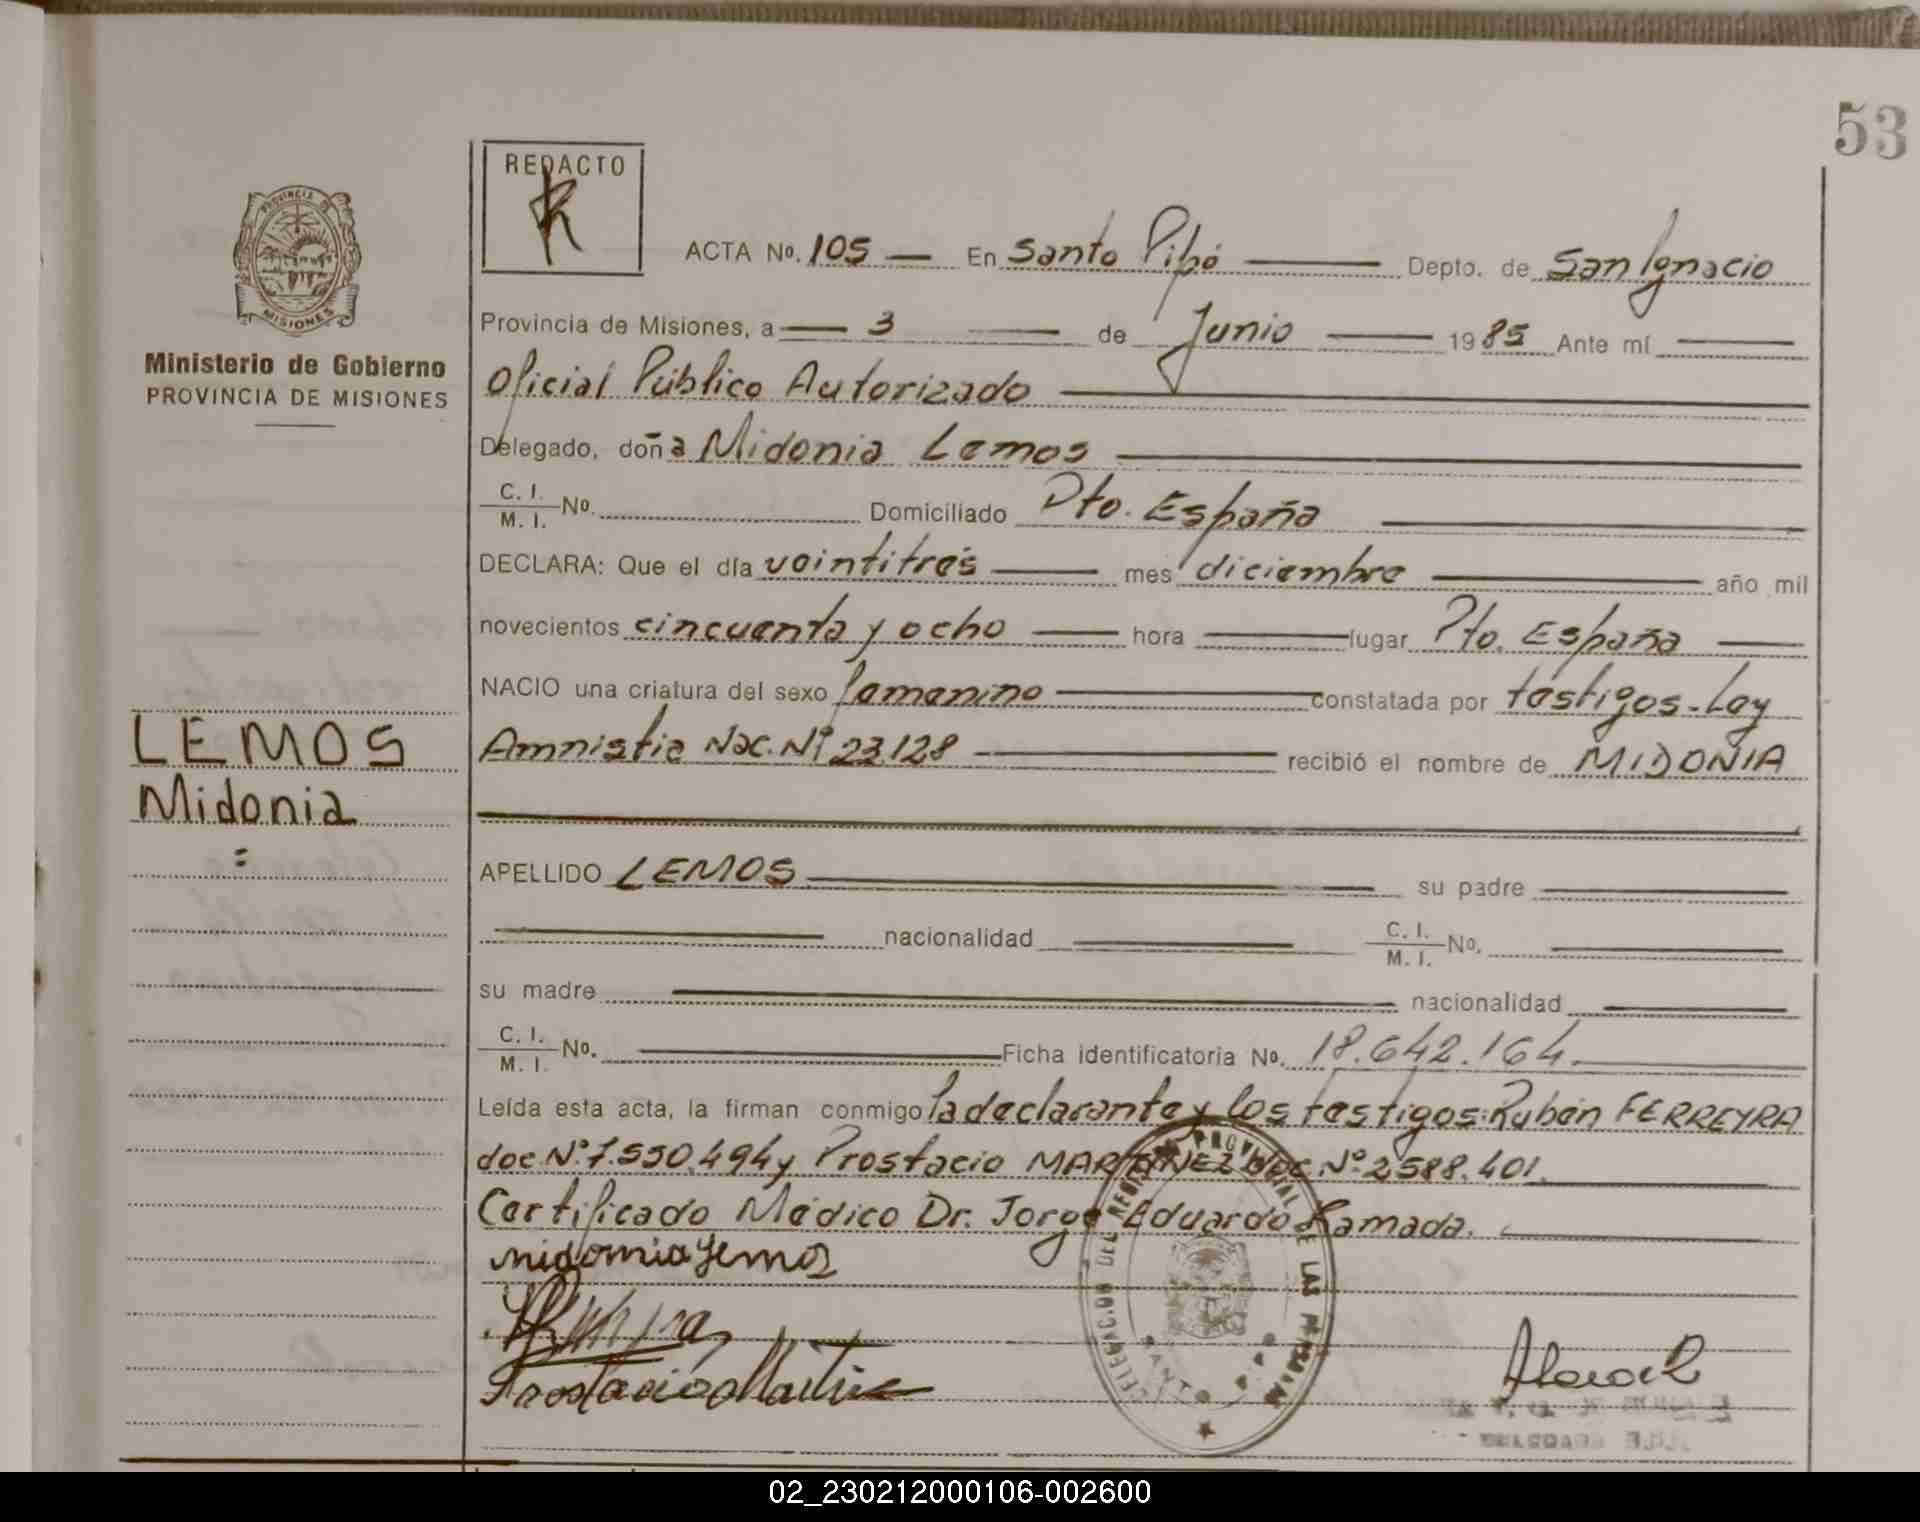 53
REDACTO
ACTA No. 105 — En Santo Pipó — Depto. de San Ignacio
PROVINCIA DE
MISIONES
Ministerio de Gobierno
PROVINCIA DE MISIONES
Provincia de Misiones, a — 3 — de Junio — 1985 Ante mí —
Oficial Público Autorizado —
Delegado, doña Midonia Lemos —
C. I.
M. I. No. Domiciliado Pto. España —
DECLARA: Que el día veintitrés — mes diciembre — año mil
novecientos cincuenta y ocho — hora — lugar Pto. España —
NACIO una criatura del sexo femenino — constatada por testigos-Ley
Amnistia Nac. Nº 23.128 — recibió el nombre de MIDONIA
LEMOS
Midonia
=
APELLIDO LEMOS — su padre —
— nacionalidad — C. I.
M. I. No. —
su madre — nacionalidad —
C. I.
M. I. No. — Ficha identificatoria No. 18.642.164. —
Leída esta acta, la firman conmigo la declarante y los testigos: Rubén FERREYRA
doc. Nº 7.550.494 y Prostacio MARTINEZ doc. Nº 2588.401. —
Certificado Médico Dr. Jorge Eduardo Ramada. —
midomia Lemos
Prostacio Martinez
REGISTRO PROVINCIAL DE LAS PERSONAS
SANTO
02_230212000106-002600